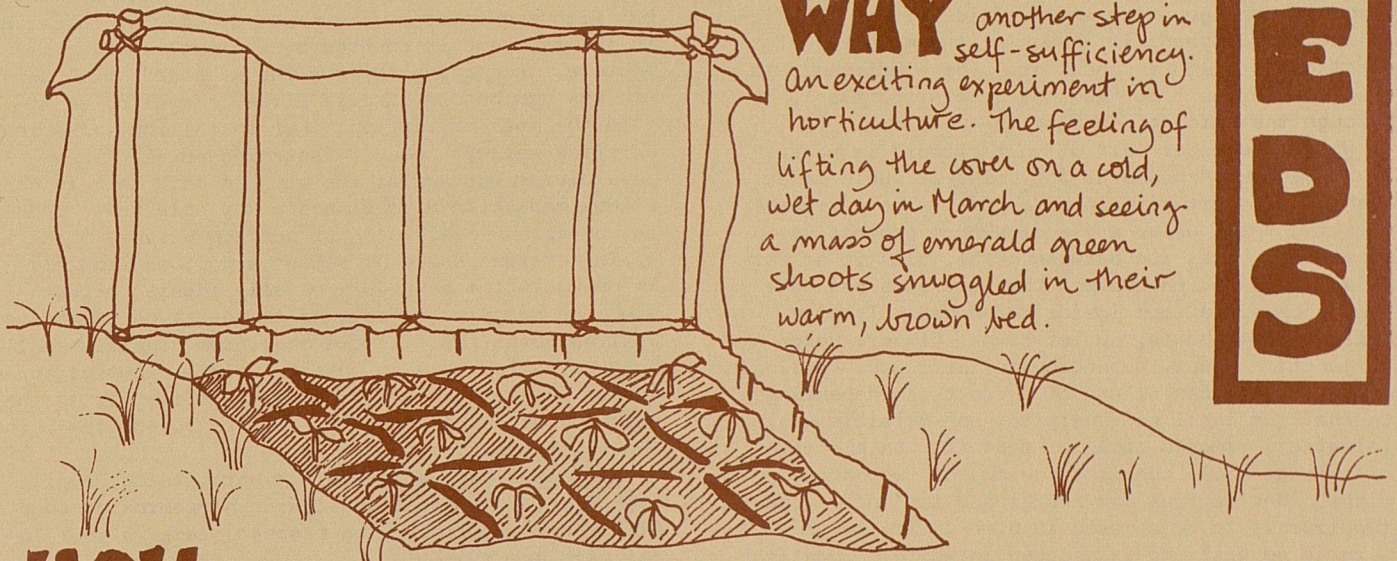 WHY another step in
self-sufficiency.
An exciting experiment in
horticulture. The feeling of
lifting the cover on a cold,
wet day in March and seeing
a mass of emerald green
shoots snuggled in their
warm, brown bed.
E
D
S